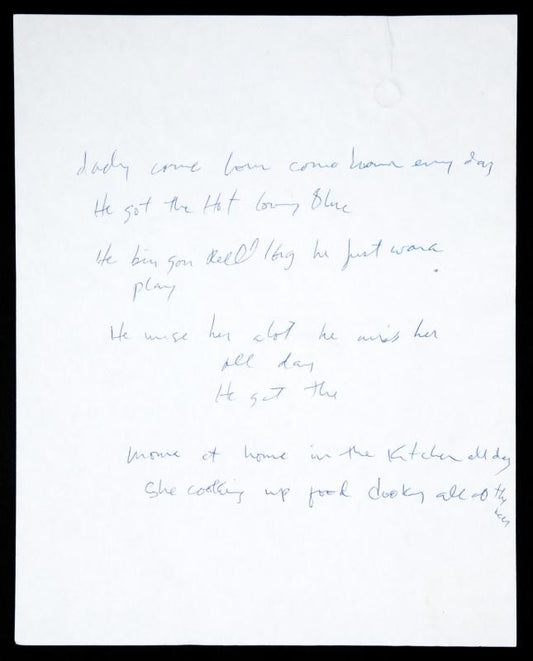 dady come hom come home evry day
He got the Hot loving Blue
He bin gon
he just wana
play
He miss her alot he miss her
all day
He got the
mome at home in the Kitchen all day
She cooking up food
all